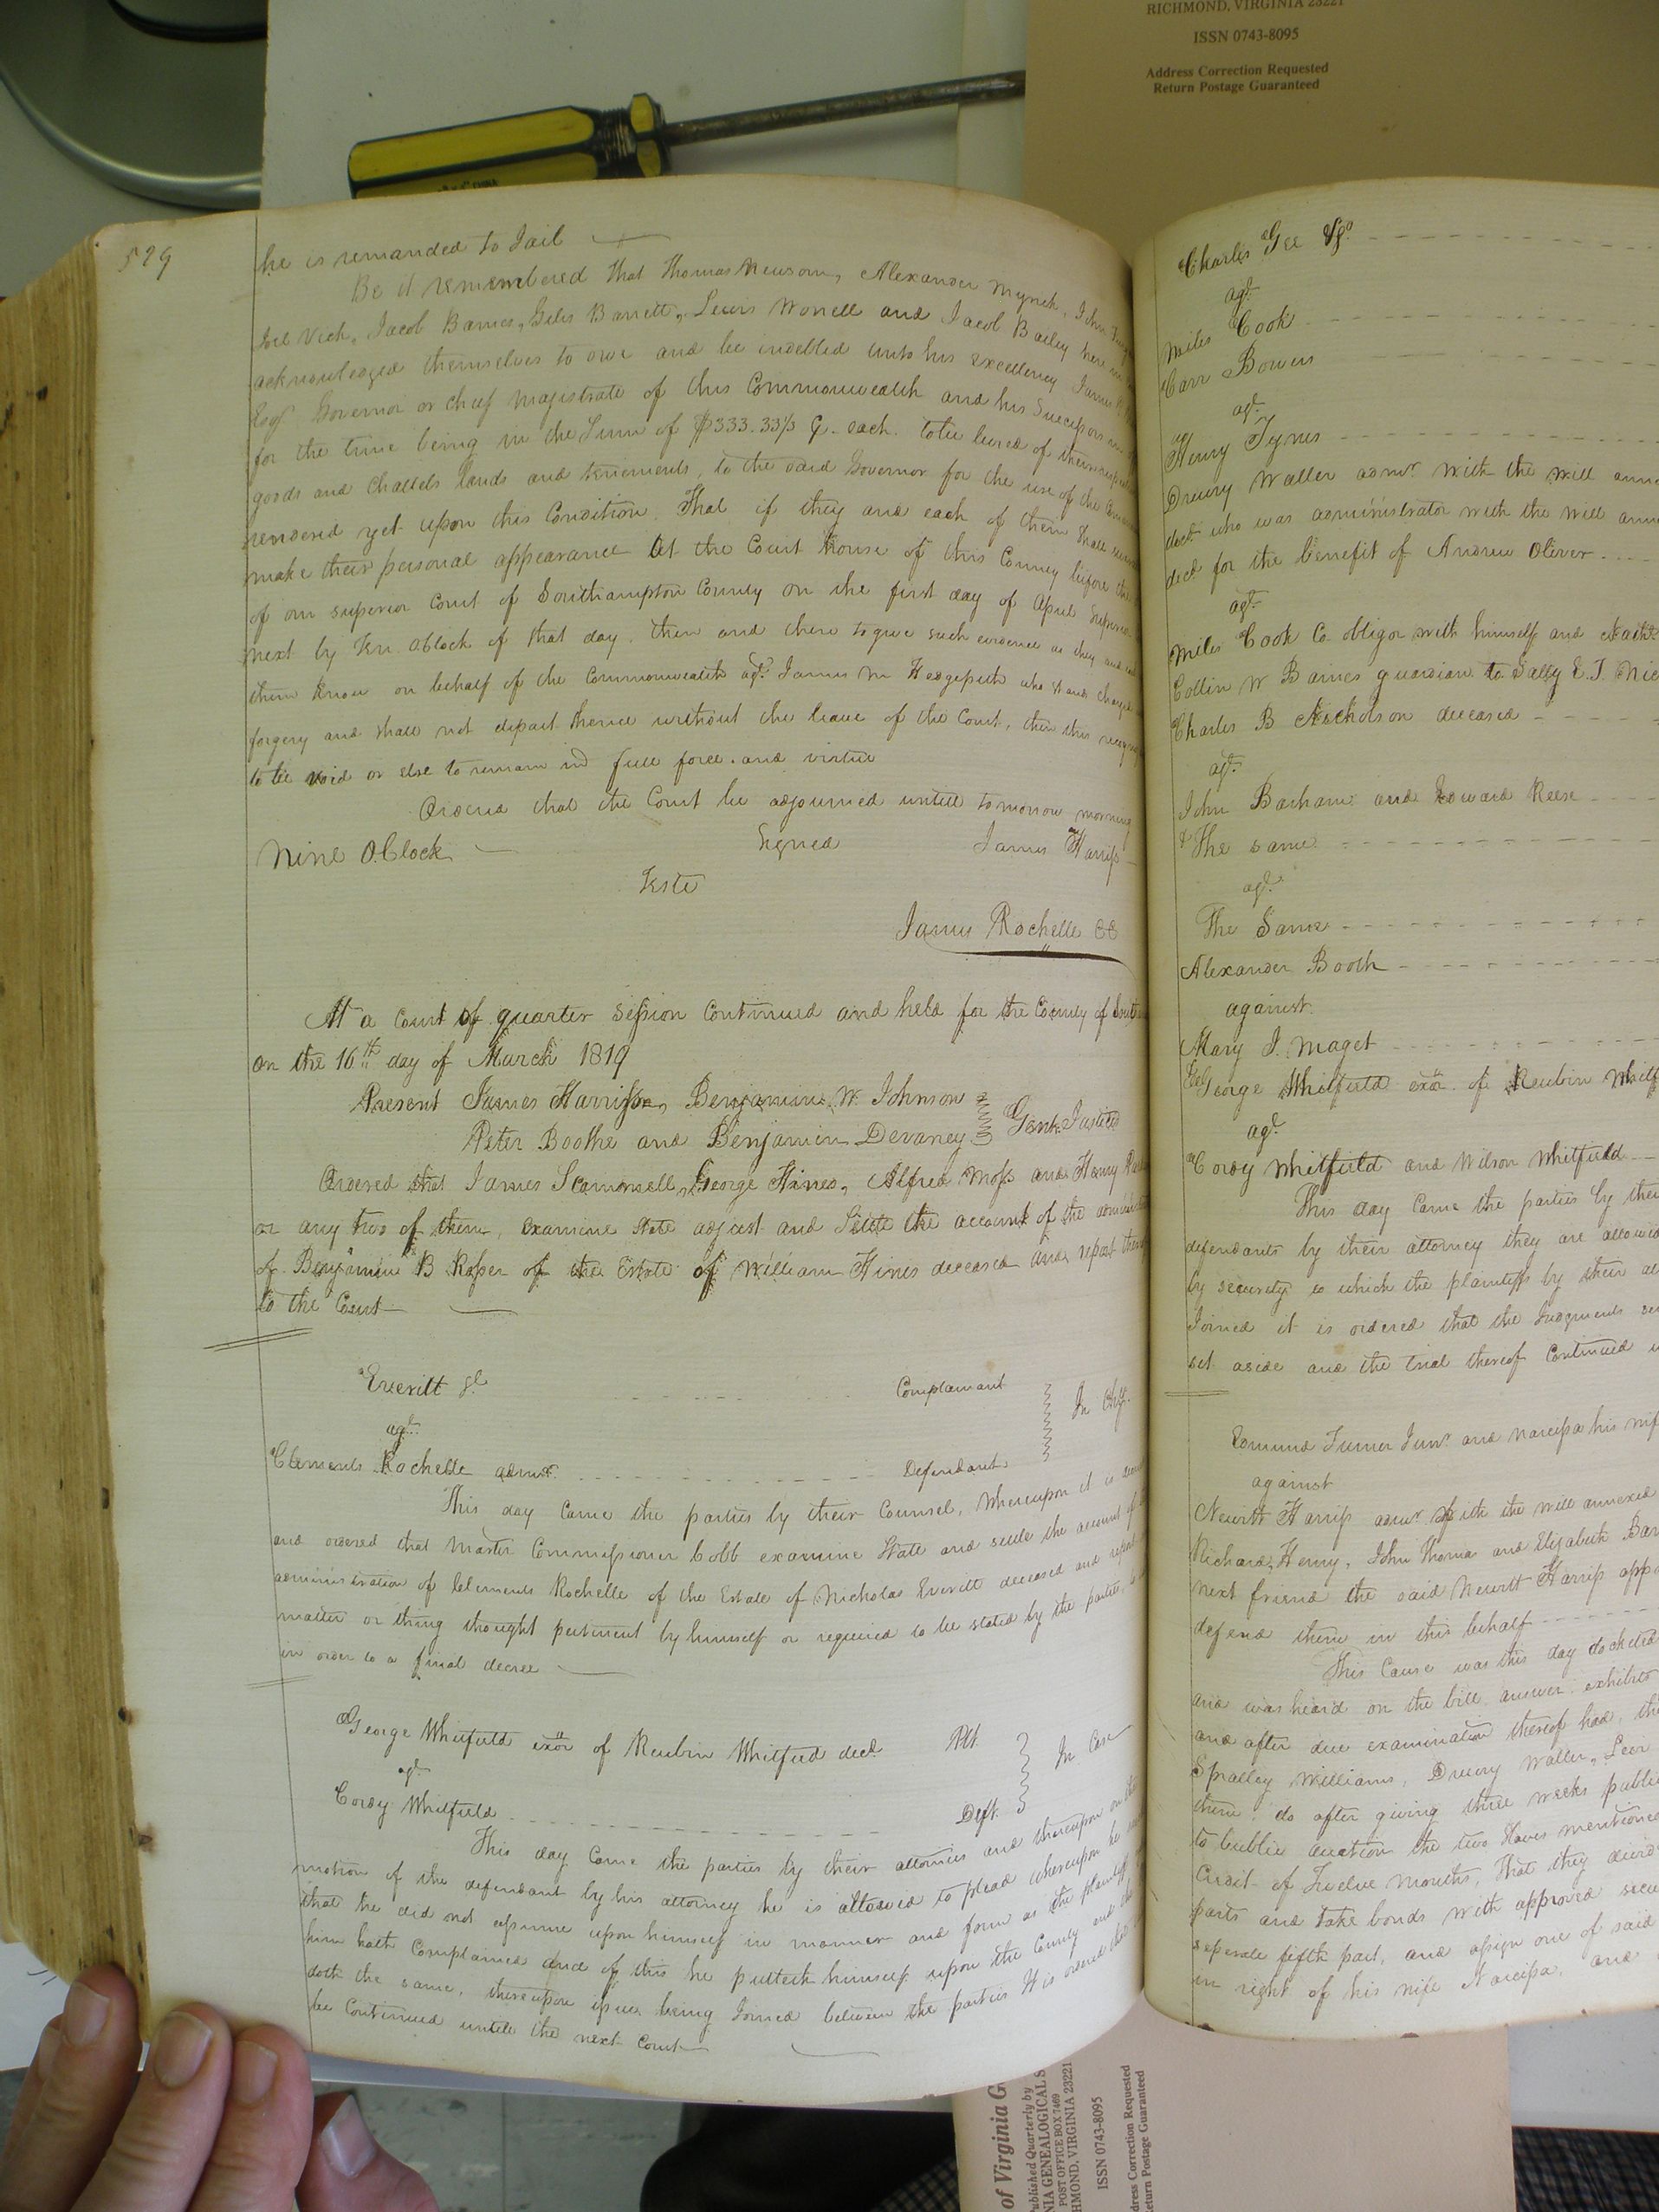 RICHMOND, VIRGINIA 23221
ISSN 0743-8095
Address Correction Requested
Return Postage Guaranteed
529
he is remanded to Jail
Be it remembered that Thomas Newsom, Alexander Myrick, John
Joel Vick, Jacob Barnes, Giles Barrett, Lewis Worrell and Jacob Bailey here
acknowledged themselves to owe and be indebted unto his excellency James
Esqr Governor or chief Magistrate of this Commonwealth and his Successors
for the time being in the Sum of $333.33 1/3 C. each. to be levied of their
goods and Chattels lands and tenements, to the said Governor for the use of the
rendered yet upon this Condition. That if they and each of them shall
make their personal appearance at the Court house of this County before the
of our superior Court of Southampton County on the first day of April
next by ten OClock of that day. then and there to give such evidence as they and
them know on behalf of the Commonwealth agt. James M Hedgepeth who stands charged
forgery and shall not depart thence without the leave of the Court, then this
to be void or else to remain in full force. and virtue
Ordered that the Court be adjourned untill tomorrow morning
Nine OClock
Signed James Harriss
Teste
James Rochelle CC
At a Court of quarter Session Continued and held for the County of
on the 16th day of March 1819
Present James Harrison, Benjamin W. Johnson
Peter Boothe and Benjamin Devaney Gent. Justices
Ordered that James Scammell, George Hines, Alfred Moss and Henry
or any two of them, examine state adjust and Settle the account of the
of Benjamin B Roper of the Estate of William Hines deceased and report
to the Court
Everitt &c Complainant
agt. In Chy.
Clements Rochelle admr. Defendant
This day came the parties by their Counsel, Whereupon it is
and ordered that Master Commissioner Cobb examine State and settle the account of
administration of Clements Rochelle of the Estate of Nicholas Everitt deceased and report
matter or thing thought pertinent by himself or required to be stated by the parties,
in order to a final decree
George Whitfield exor of Reubin Whitfield decd. Plt.
agt. In Case
Cordy Whitfield Deft.
This day Came the parties by their attornies and thereupon on
motion of the defendant by his attorney he is allowed to plead whereupon he
that he did not assume upon himself in manner and form as the plaintiff
him hath Complained and of this he putteth himself upon the County and the
doth the same, thereupon issue being Joined between the parties It is ordered that
be Continued untill the next Court
Charles Gee &Co
agt.
Miles Cook
Carr Bowers
agt.
Henry Tyns
Drewry Waller admr. with the will
decd who was administrator with the will
decd for the benefit of Andrew Oliver
agt.
Miles Cook Co. obligor with himself and
Collin W Barnes guardian to Sally E. T.
Charles B Nicholson deceased
agt.
John Barham and Howard Reese
The same
agt.
The Same
Alexander Booth
against
Mary J. Maget
George Whitfield exor. of Reubin
agt.
Cordy Whitfield and Wilson Whitfield
This day Came the parties by their
defendants by their attorney they are allowed
by security to which the plaintiffs by their
Joined it is ordered that the Judgments
set aside and the trial thereof Continued
Edmund Turner Junr. and Narcissa his wife
against
Newitt Harriss admr. with the will annexed
Richard, Henry, John Thomas and Elizabeth
next friend the said Newitt Harriss
defend them in this behalf
This Cause was this day docketed
and was heard on the bill answer exhibits
and after due examination thereof had,
Spratley Williams, Drewry Waller,
them, do after giving three weeks
to public auction the two slaves mentioned
Credit of Twelve months, that they
parts and take bonds with approved
seperate fifth part, and assign one of said
in right of his wife Narcissa, and
of Virginia
Published Quarterly by
VIRGINIA GENEALOGICAL S
POST OFFICE BOX 7469
RICHMOND, VIRGINIA 23221
ISSN 0743-8095
Address Correction Requested
Return Postage Guaranteed